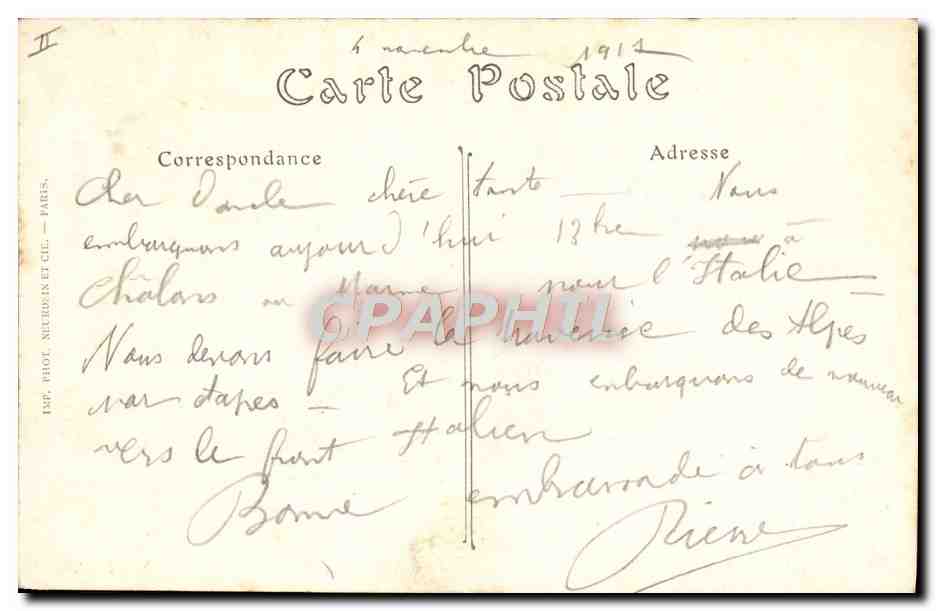 II
4 novembre 1917
Carte Postale
Correspondance
Adresse
Cher Oncle chère tante — Nous
embarquons aujourd'hui 13 hre à
Châlons sur Marne pour l'Italie —
Nous devons faire la traversée des Alpes
par étapes — Et nous embarquons de nouveau
vers le front Italien
Bonne embrassade à tous
Pierre
IMP. PHOT. NEURDEIN ET CIE. — PARIS.
CPAPHIL